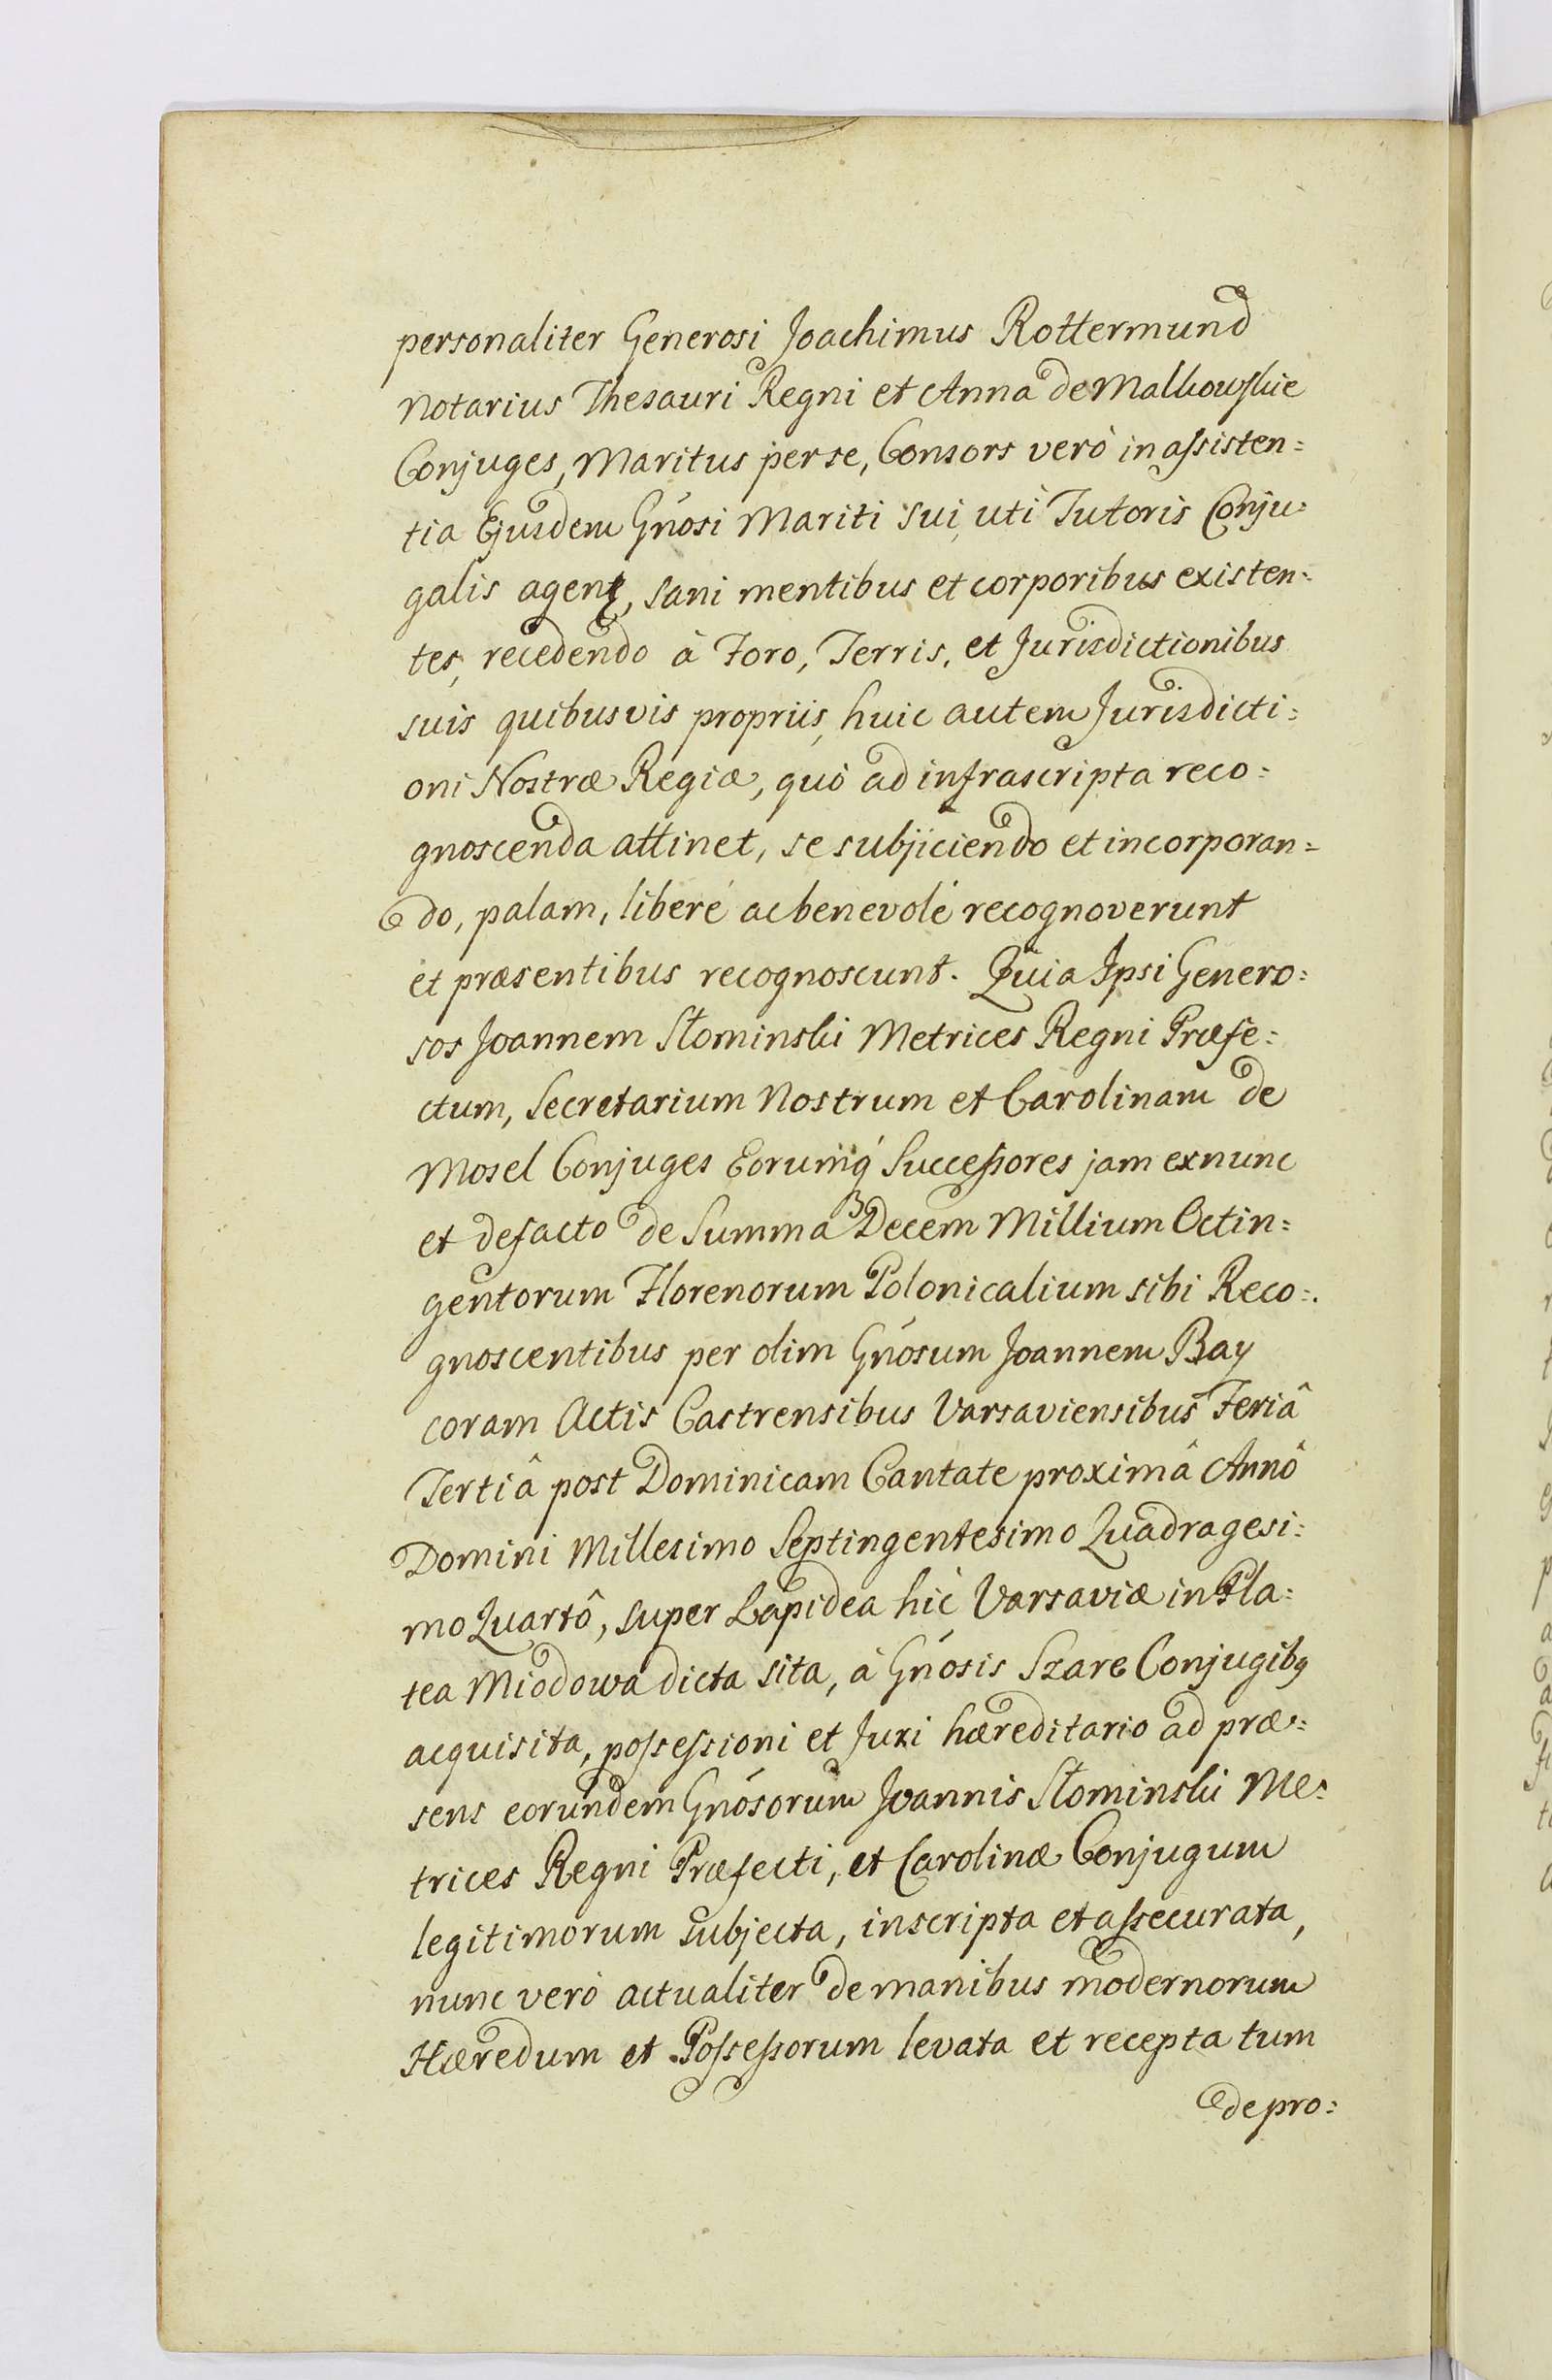 personaliter Generosi Joachimus Rottermund
Notarius Thesauri Regni et Anna de Malkowskie
Conjuges, Maritus per se, Consors verò in assisten=
tia Ejusdem Gnósi Mariti sui, uti Tutoris Conju=
galis agens, sani mentibus et corporibus existen=
tes, recedendo à Foro, Terris, et Jurisdictionibus
suis quibusvis propriis, huic autem Jurisdicti=
oni Nostræ Regiæ, quò ad infrascripta reco=
gnoscenda attinet, se subjiciendo et incorporan=
do, palam, liberé ac benevolé recognoverunt
et præsentibus recognoscunt. Quia Ipsi Genero=
sos Joannem Słominski Metrices Regni Præfe=
ctum, Secretarium Nostrum et Carolinam de
Mosel Conjuges Eorumq́ Successores jam exnunc
et defacto de Summa Decem Millium Octin=
gentorum Florenorum Polonicalium sibi Reco=
gnoscentibus per olim Gnósum Joannem Bay
coram Actis Castrensibus Varsaviensibus Feriâ
Tertiâ post Dominicam Cantate proximâ Annô
Domini Millesimo Septingentesimo Quadragesi=
mo Quartô, super Lapidea hic Varsaviæ in Pla=
tea Miodowa dicta sita, à Gnósis Szare Conjugibꝫ
acquisita, possessioni et Juri hæreditario ad præ=
sens eorundem Gnósorum Joannis Słominski Me=
trices Regni Præfecti, et Carolinæ Conjugum
legitimorum subjecta, inscripta et assecurata,
nunc verò actualiter de manibus modernorum
Hæredum et Possessorum levata et recepta tum
de pro=